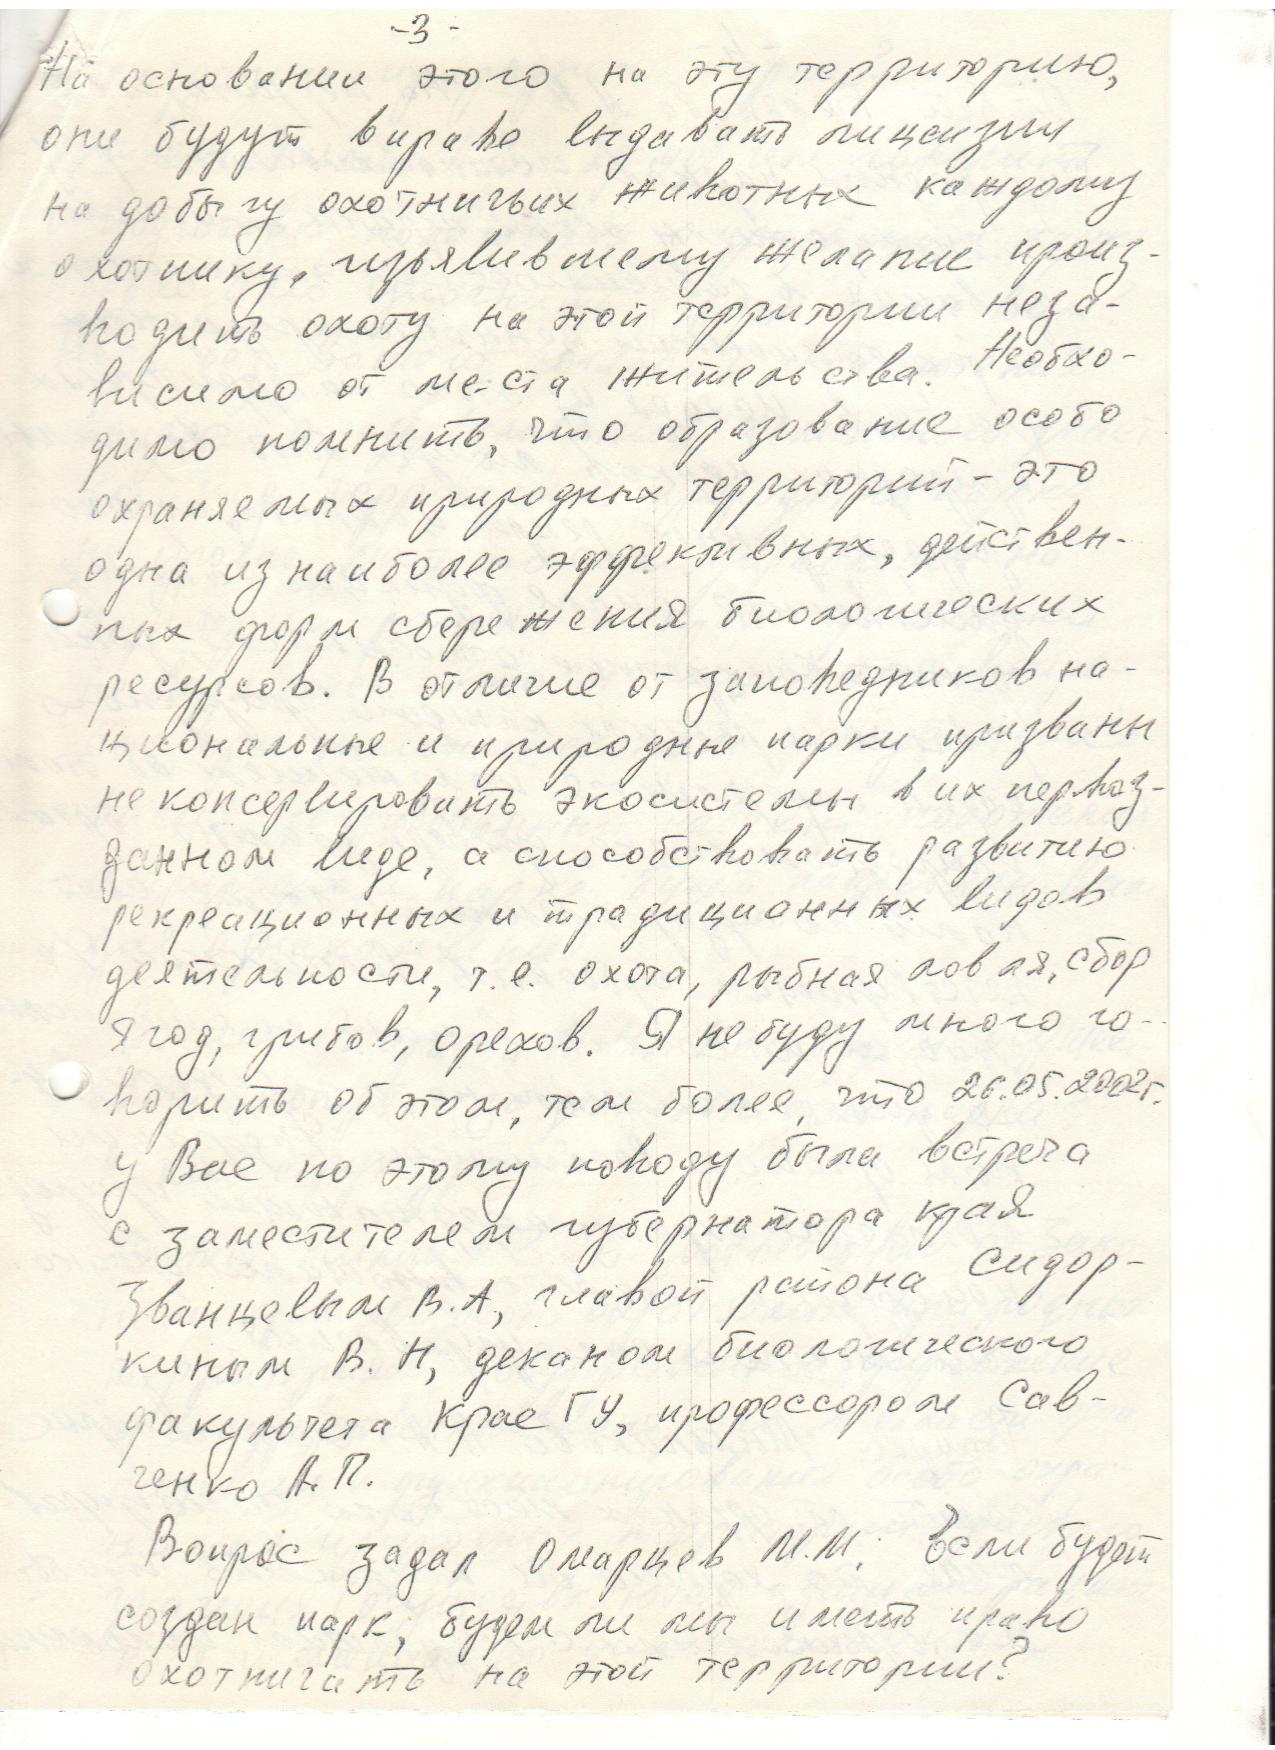 -3-
На основании этого на эту территорию,
они будут вправе выдавать лицензии
на добычу охотничьих животных каждому
охотнику, изъявившему желание произ-
водить охоту на этой территории неза-
висимо от места жительства. Необхо-
димо помнить, что образование особо
охраняемых природных территорий - это
одна из наиболее эффективных, действен-
ных форм сбережения биологических
ресурсов. В отличие от заповедников на-
циональные и природные парки призваны
не консервировать экосистемы в их первоз-
данном виде, а способствовать развитию
рекреационных и традиционных видов
деятельности, т.е. охота, рыбная ловля, сбор
ягод, грибов, орехов. Я не буду много го-
ворить об этом, тем более, что 26.05.2002г.
у Вас по этому поводу была встреча
с заместителем губернатора края
Званцевым В.А, главой района Сидор-
киным В.Н, деканом биологического
факультета КрасГУ, профессором Сав-
ченко А.П.
Вопрос задал Омарцев М.М: Если будет
создан парк, будем ли мы иметь право
охотничать на этой территории?